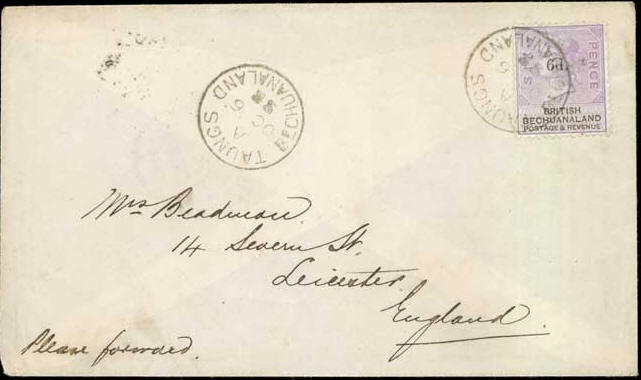 TAUNGS
BECHUANALAND
A
OC 9
88
TAUNGS
BECHUANALAND
A
9
SIX PENCE
6D
BRITISH
BECHUANALAND
POSTAGE & REVENUE
Mrs Beadman.
14 Severn St.
Leicester
England.
Please forward.